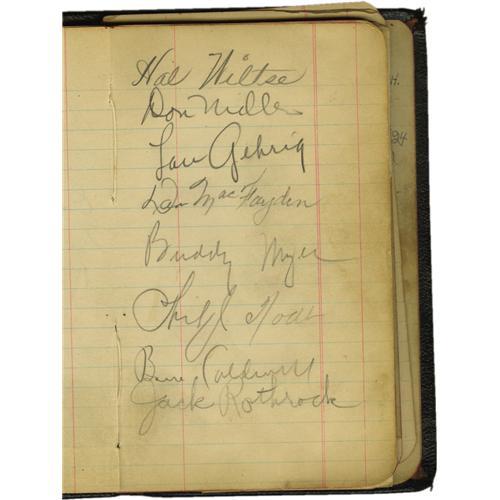 Hal Wiltse
Don Miller
Lou Gehrig
Dan MacFayden
Buddy Myer
Phil Todt
Caldwell
Jack Rothrock
24